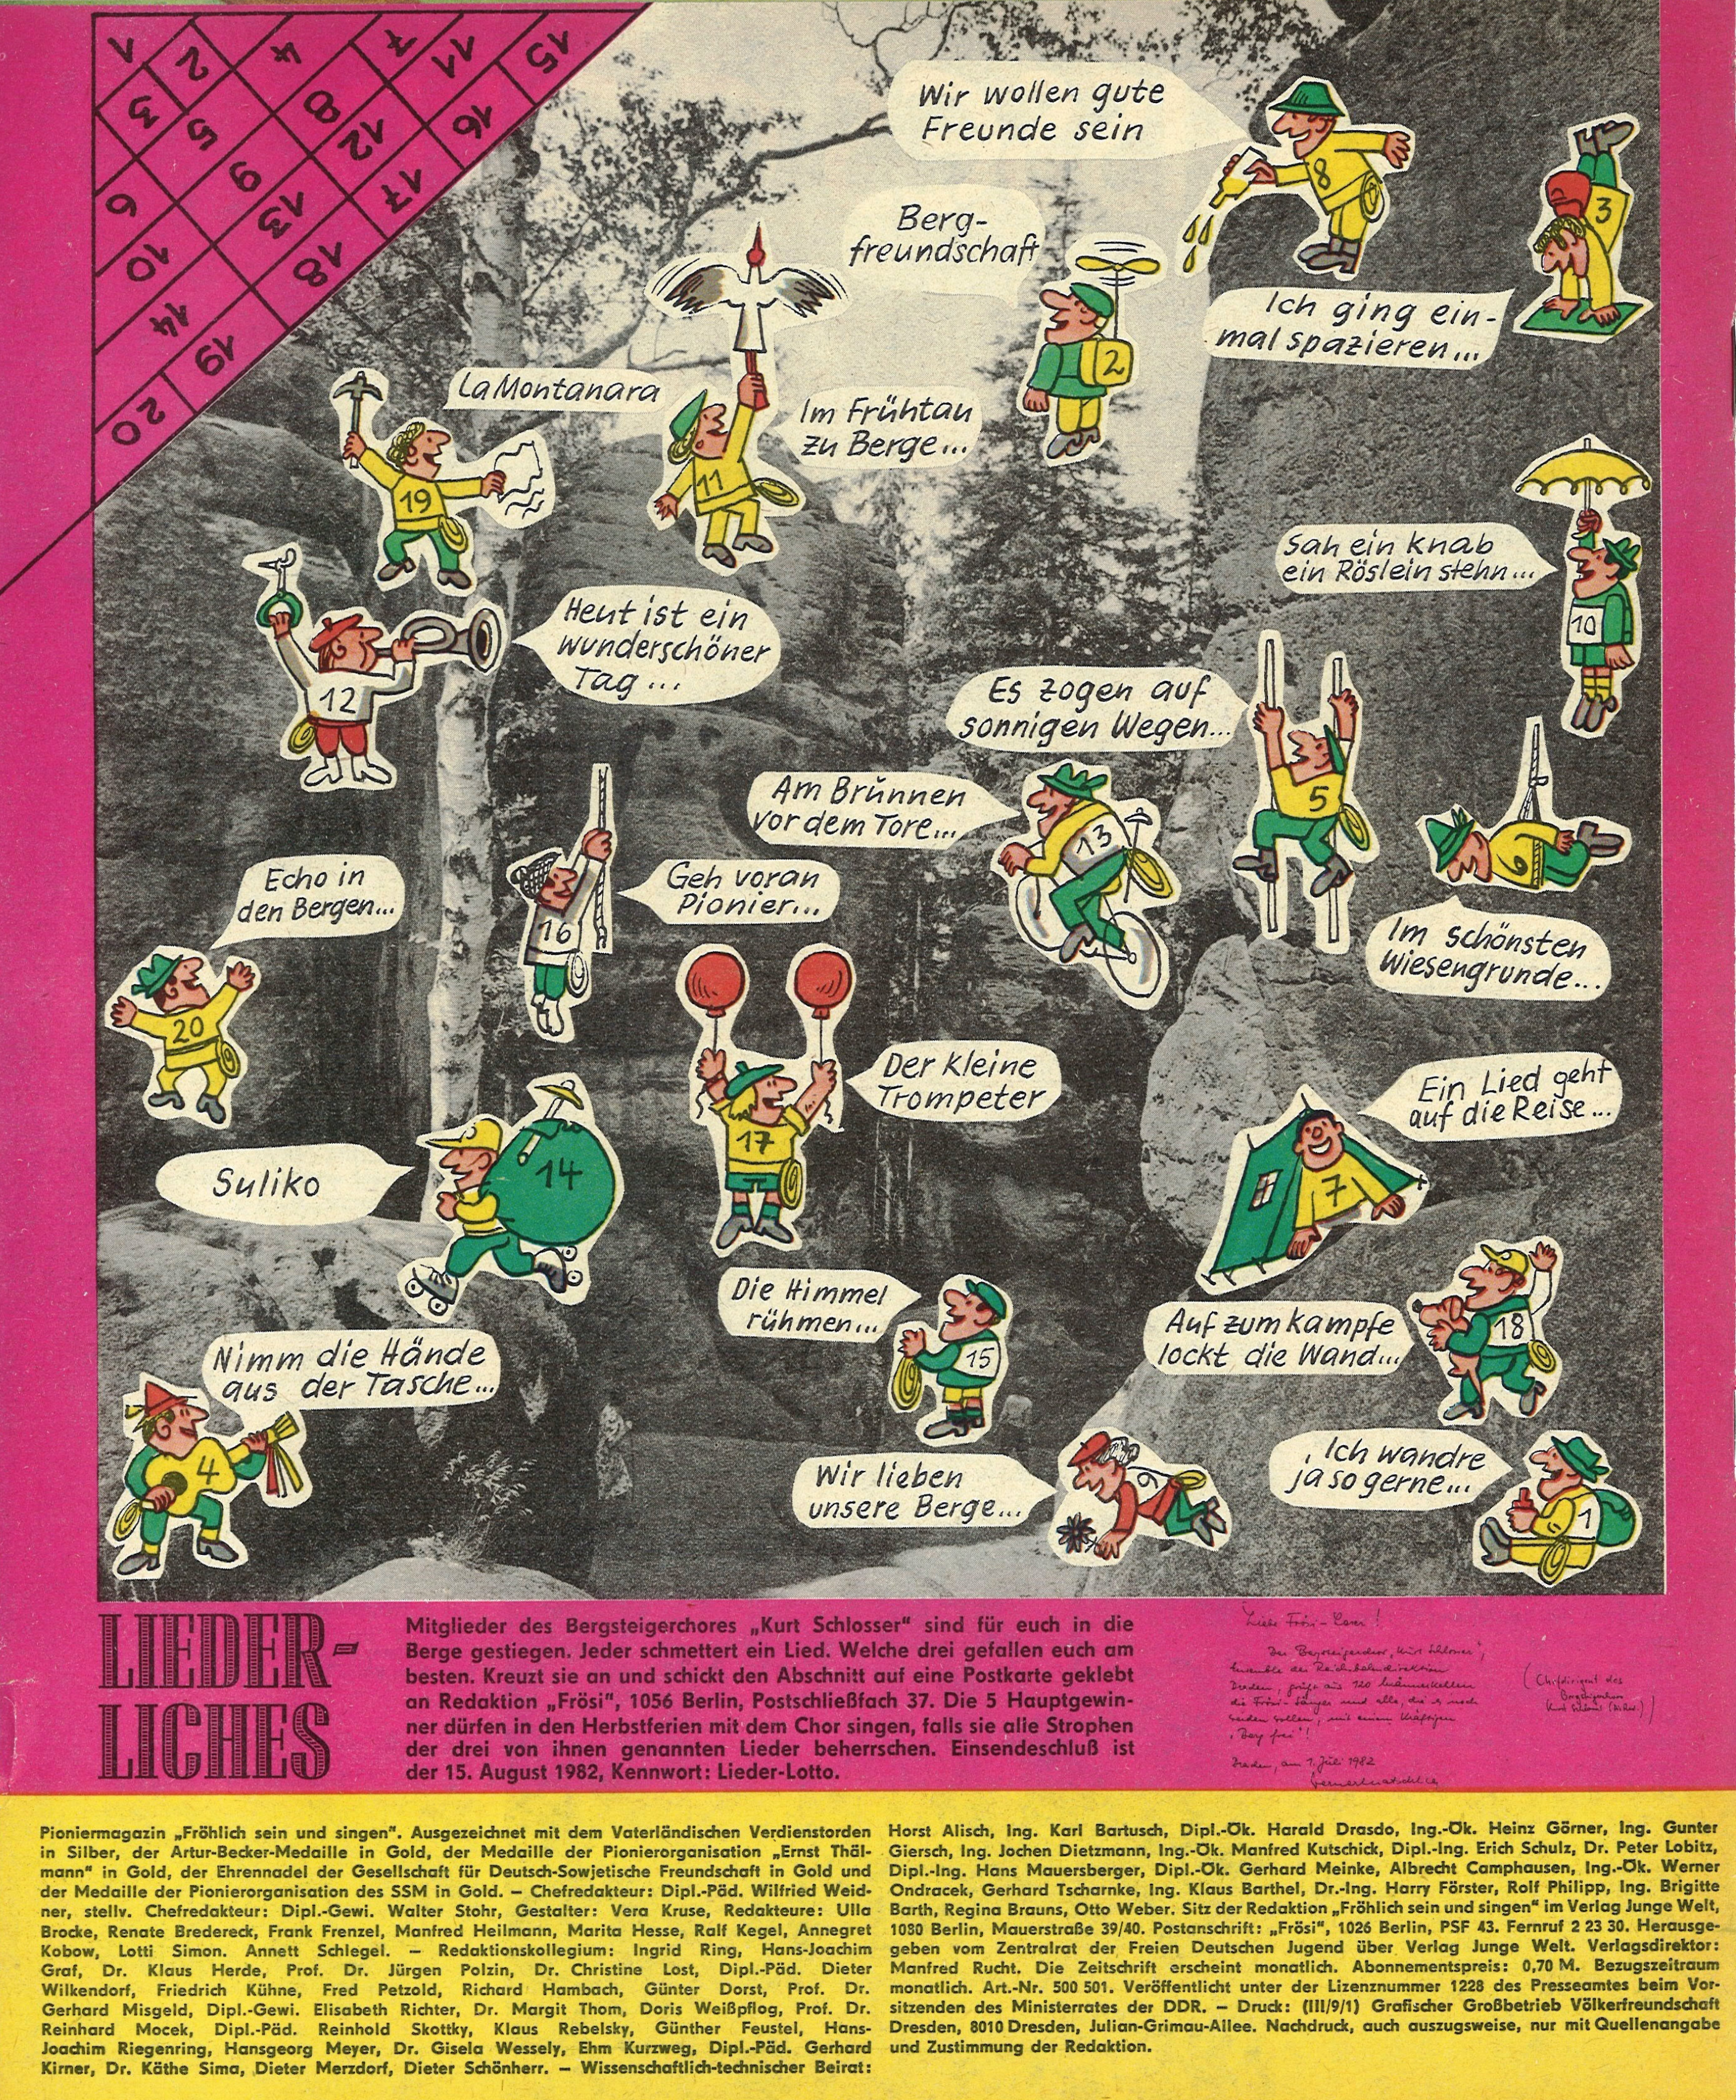 1
2
4
7
11
15
3
5
8
12
16
6
9
13
17
10
18
14
19
20
Wir wollen gute
Freunde sein
8
3
Berg-
freundschaft
2
Ich ging ein-
mal spazieren...
La Montanara
19
Im Frühtau
zu Berge...
11
Sah ein Knab
ein Röslein stehn...
10
Heut ist ein
wunderschöner
Tag...
12
Es zogen auf
sonnigen Wegen...
5
Am Brunnen
vor dem Tore...
13
6
Im schönsten
Wiesengrunde...
Echo in
den Bergen...
20
Geh voran
Pionier...
16
Der kleine
Trompeter
17
Ein Lied geht
auf die Reise...
7
Suliko
14
Die Himmel
rühmen...
15
Auf zum Kampfe
lockt die Wand...
18
Nimm die Hände
aus der Tasche...
4
Wir lieben
unsere Berge...
9
Ich wandre
ja so gerne...
1
LIEDER-
LICHES
Mitglieder des Bergsteigerchores „Kurt Schlosser" sind für euch in die
Berge gestiegen. Jeder schmettert ein Lied. Welche drei gefallen euch am
besten. Kreuzt sie an und schickt den Abschnitt auf eine Postkarte geklebt
an Redaktion „Frösi", 1056 Berlin, Postschließfach 37. Die 5 Hauptgewin-
ner dürfen in den Herbstferien mit dem Chor singen, falls sie alle Strophen
der drei von ihnen genannten Lieder beherrschen. Einsendeschluß ist
der 15. August 1982, Kennwort: Lieder-Lotto.
Liebe Frösi-Leser!
Der Bergsteigerchor „Kurt Schlosser",
Ensemble der Reichsbahndirektion
Dresden, grüßt aus 120 Männerkehlen
die Frösi-Sänger und alle, die es noch
werden wollen, mit einem kräftigen
„Berg frei"!
Dresden, am 1. Juli 1982
(Chefdirigent des
Bergsteigerchors
Kurt Schlosser
Pioniermagazin „Fröhlich sein und singen". Ausgezeichnet mit dem Vaterländischen Verdienstorden
in Silber, der Artur-Becker-Medaille in Gold, der Medaille der Pionierorganisation „Ernst Thäl-
mann" in Gold, der Ehrennadel der Gesellschaft für Deutsch-Sowjetische Freundschaft in Gold und
der Medaille der Pionierorganisation des SSM in Gold. – Chefredakteur: Dipl.-Päd. Wilfried Weid-
ner, stellv. Chefredakteur: Dipl.-Gewi. Walter Stohr, Gestalter: Vera Kruse, Redakteure: Ulla
Brocke, Renate Bredereck, Frank Frenzel, Manfred Heilmann, Marita Hesse, Ralf Kegel, Annegret
Kobow, Lotti Simon. Annett Schlegel. – Redaktionskollegium: Ingrid Ring, Hans-Joachim
Graf, Dr. Klaus Herde, Prof. Dr. Jürgen Polzin, Dr. Christine Lost, Dipl.-Päd. Dieter
Wilkendorf, Friedrich Kühne, Fred Petzold, Richard Hambach, Günter Dorst, Prof. Dr.
Gerhard Misgeld, Dipl.-Gewi. Elisabeth Richter, Dr. Margit Thom, Doris Weißpflog, Prof. Dr.
Reinhard Mocek, Dipl.-Päd. Reinhold Skottky, Klaus Rebelsky, Günther Feustel, Hans-
Joachim Riegenring, Hansgeorg Meyer, Dr. Gisela Wessely, Ehm Kurzweg, Dipl.-Päd. Gerhard
Kirner, Dr. Käthe Sima, Dieter Merzdorf, Dieter Schönherr. – Wissenschaftlich-technischer Beirat:
Horst Alisch, Ing. Karl Bartusch, Dipl.-Ök. Harald Drasdo, Ing.-Ök. Heinz Görner, Ing. Gunter
Giersch, Ing. Jochen Dietzmann, Ing.-Ök. Manfred Kutschick, Dipl.-Ing. Erich Schulz, Dr. Peter Lobitz,
Dipl.-Ing. Hans Mauersberger, Dipl.-Ök. Gerhard Meinke, Albrecht Camphausen, Ing.-Ök. Werner
Ondracek, Gerhard Tscharnke, Ing. Klaus Barthel, Dr.-Ing. Harry Förster, Rolf Philipp, Ing. Brigitte
Barth, Regina Brauns, Otto Weber. Sitz der Redaktion „Fröhlich sein und singen" im Verlag Junge Welt,
1080 Berlin, Mauerstraße 39/40. Postanschrift: „Frösi", 1026 Berlin, PSF 43. Fernruf 2 23 30. Herausge-
geben vom Zentralrat der Freien Deutschen Jugend über Verlag Junge Welt. Verlagsdirektor:
Manfred Rucht. Die Zeitschrift erscheint monatlich. Abonnementspreis: 0,70 M. Bezugszeitraum
monatlich. Art.-Nr. 500 501. Veröffentlicht unter der Lizenznummer 1228 des Presseamtes beim Vor-
sitzenden des Ministerrates der DDR. – Druck: (III/9/1) Grafischer Großbetrieb Völkerfreundschaft
Dresden, 8010 Dresden, Julian-Grimau-Allee. Nachdruck, auch auszugsweise, nur mit Quellenangabe
und Zustimmung der Redaktion.